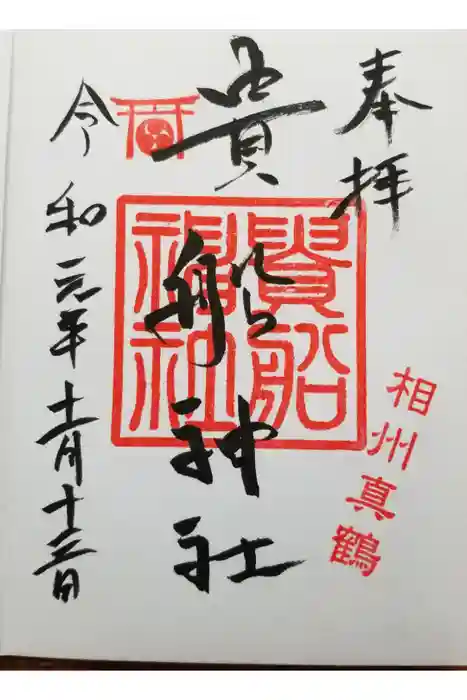 奉拝
相州真鶴
貴船神社
貴船
神社
令和元年十一月